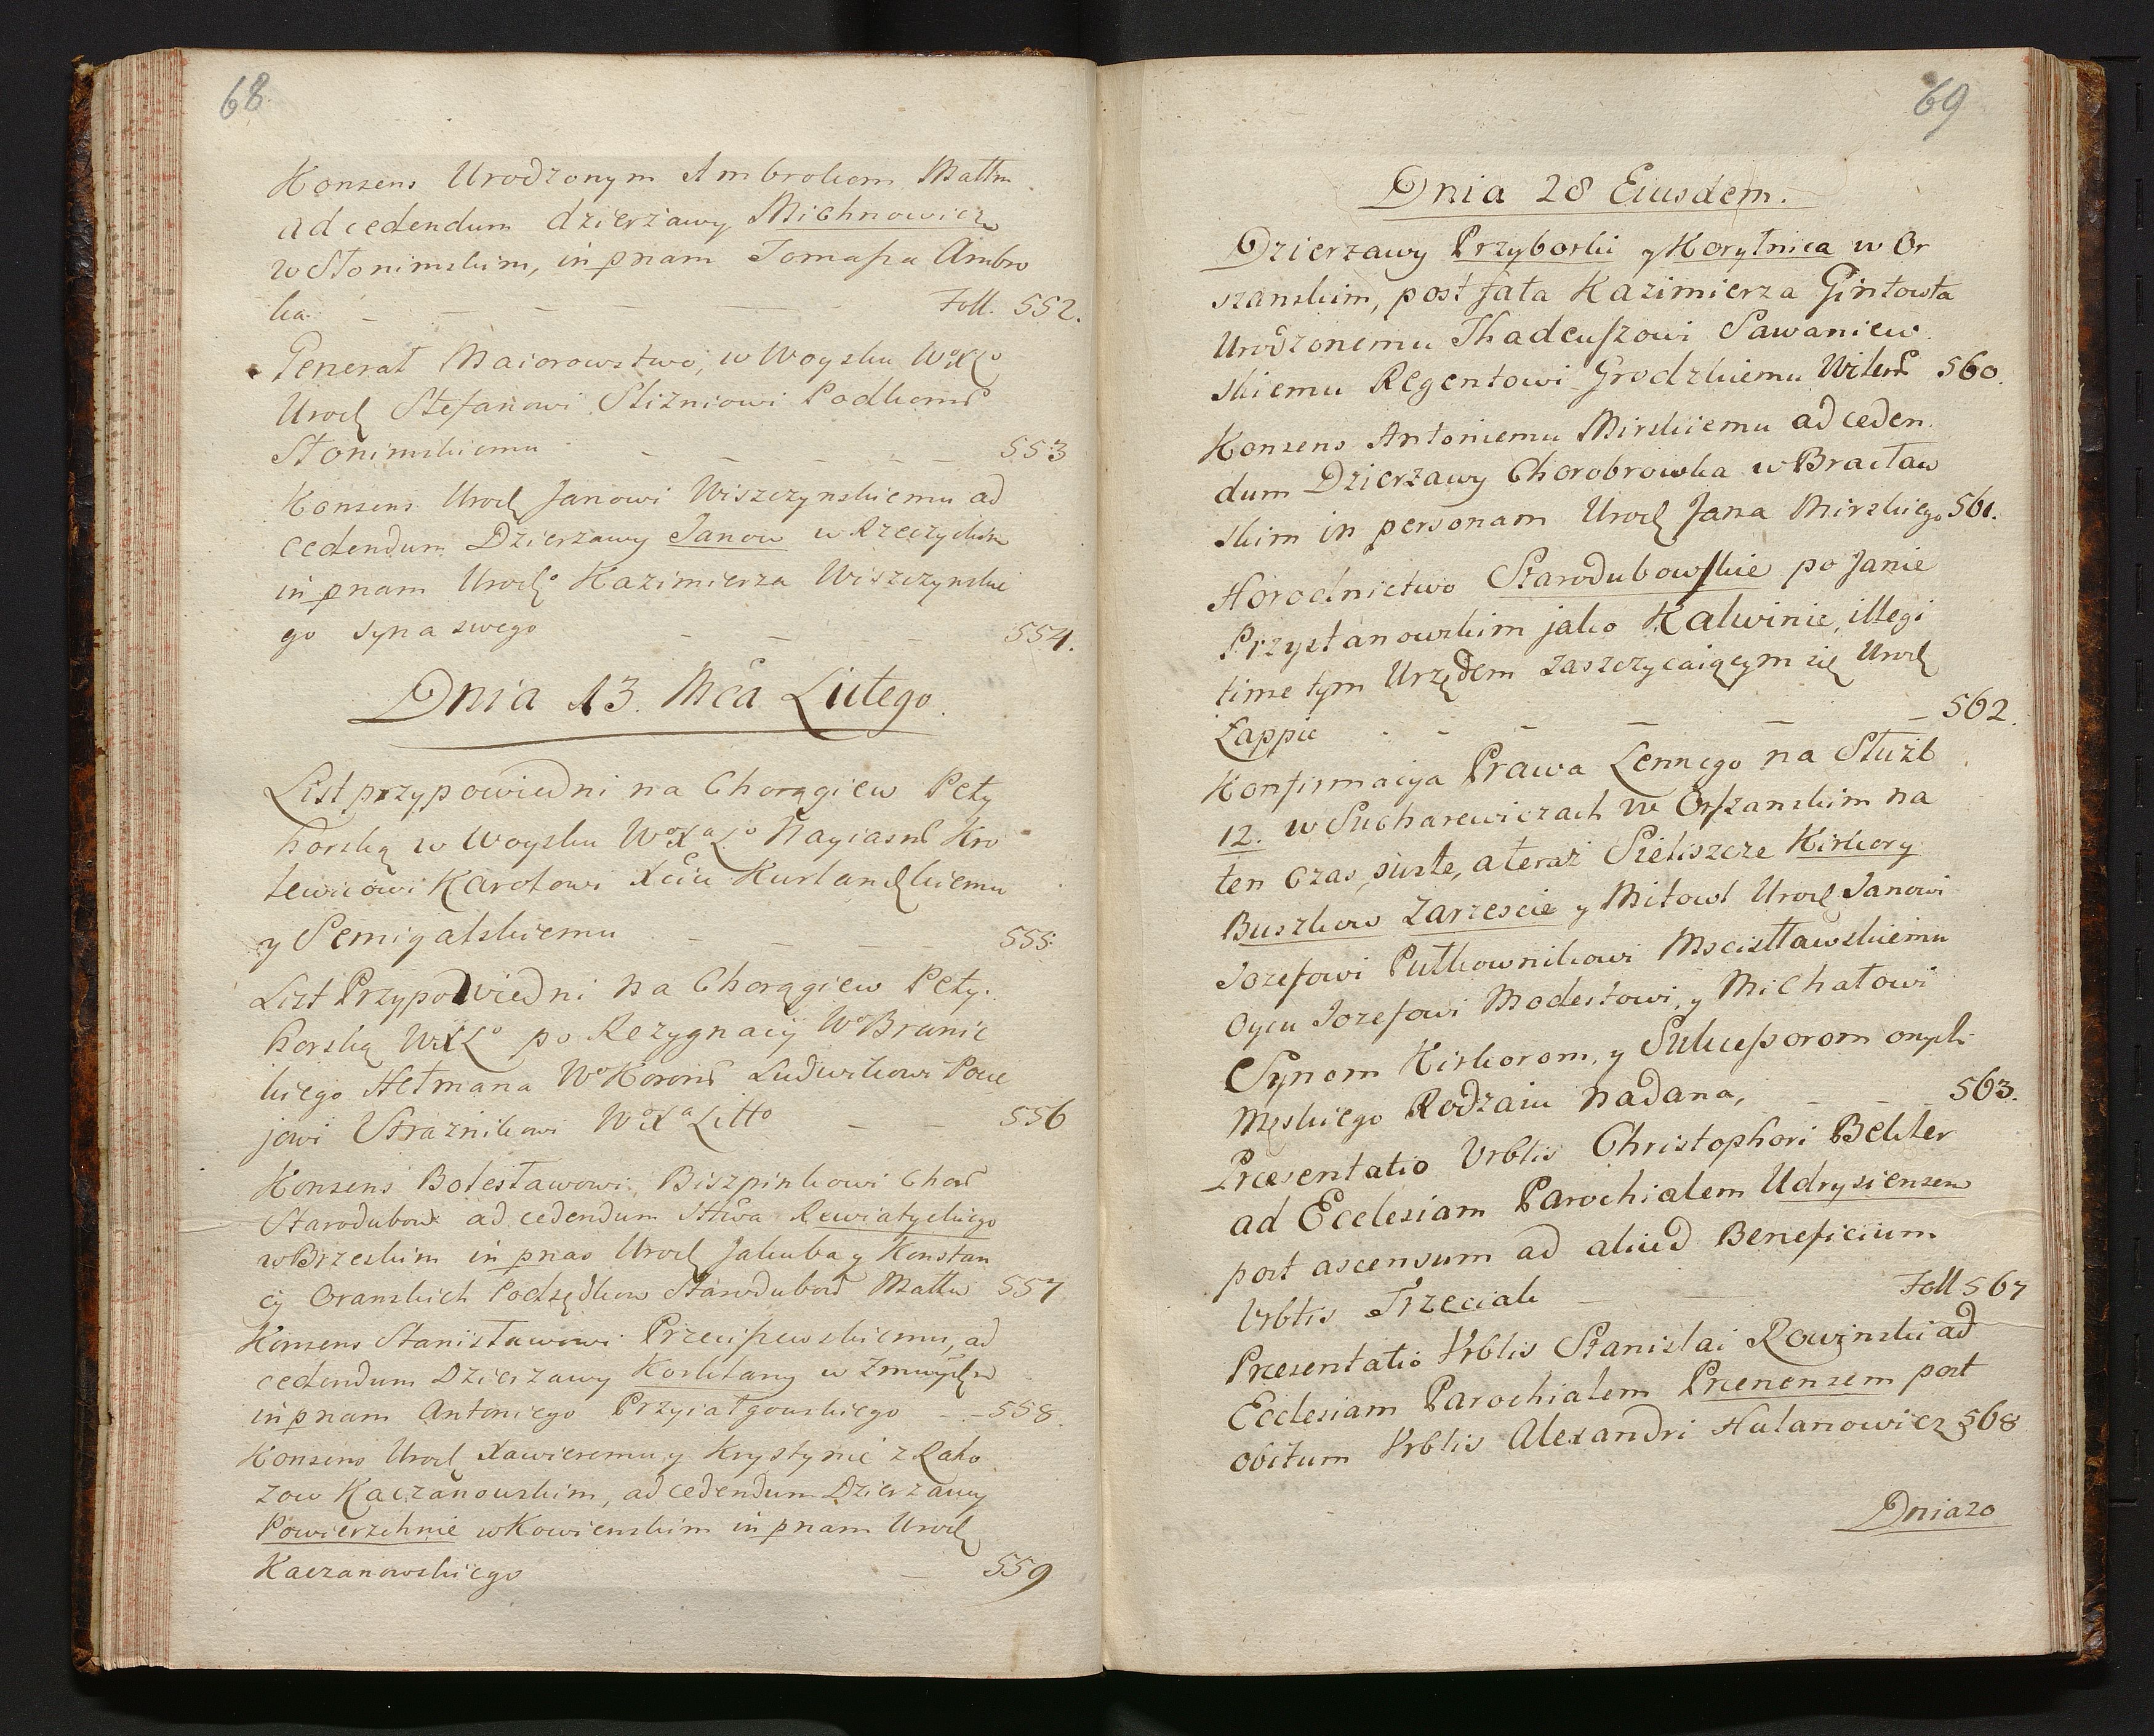 68
Konsens Urodzonym Ambrokom Małłm
ad cedendum dzierżawy Michnowicze
w Słonimskim, in pnam Tomaſza Ambro
ka. Foll. 552.
Generał Maiorowstwo, w Woysku WoXLo
Urodz Stefanowi Sliźniowi Podkom
Słonimskiemu 553
Konsens Urodz Janowi Wiszczynskiemu ad
cedendum Dzierżawy Janow w Rzeczyckim
in pnam Urodzo Kazimierza Wiszczynskie
go syna swego 554.
Dnia 13. Mca Lutego.
List przypowiedni na Chorągiew Pety
horską w Woysku WoXaLo Nayiasn Kro
lewicowi Karolowi Xciu Kurlandzkiemu
y Semigalskiemu 555.
List Przypowiedni na Chorągiew Pety.
horską WXLo po Rezygnacij Wo Branic
kiego Hetmana Wo Koron Ludwikowi Pocie
jowi Strażnikowi WoXa Litto 556
Konsens Bolesławowi Biszpinkowi Chor
Starodubow ad cedendum Sttwa Rewiatyckiego
w Brzeskim in pnas Urodz Jakuba y Konstan
cij Oranskich Podsędkow Starodubow Małłw 557
Konsens Stanisławowi Przeciſzewskiemu, ad
cedendum Dzierzawy Korklany w Zmuydz
in pnam Antoniego Przyiałgowskiego 558.
Konsens Urodz Xawieremu y Krystynie z Rako
zow Kaczanowskim, ad cedendum Dzierzawy
Powierzchnie w Kowienskim in pnam Urodz
Kaczanowskiego 559
69
Dnia 28 Eiusdem.
Dzierzawy Przyborki y Korytnica w Or
szanskim, post fata Kazimierza Gintowta
Urodzonemu Thadeuſzowi Sawaniew
skiemu Regentowi Grodzkiemu Wilen 560.
Konsens Antoniemu Mirskiemu ad ceden.
dum Dzierżawy Chorobrowka w Bracław
skim in personam Urodz Jana Mirskiego 561.
Horodnictwo Starodubowſkie po Janie
Przystanowskim jako Kalwinie, illegi
time tym Urzędem zaszczycaiącym się Urodz
Łappie 562.
Konfirmacija Prawa Lennego na Służb
12. w Sucharewiczach w Orſzanskim na
ten czas puste, a teraz Sieliszcze Kirkory
Buszkow Zarzescie y Miłow Urodz Janowi
Jozefowi Pułkownikowi Mscisławskiemu
Oycu Jozefowi Modestowi, y Michałowi
Synom Kirkorom, y Sukceſsorom onych
Męskiego Rodzaiu nadana, 563.
Præsentatio Vrblis Christophori Bekler
ad Ecclesiam Parochialem Udrysiensem
post ascensum ad aliud Beneficium
Vrblis Trzeciak Foll 567
Præsentatio Vrblis Stanislai Rowinski ad
Ecclesiam Parochialem Prænensem post
obitum Vrblis Alexandri Hulanowicz 568
Dnia 20